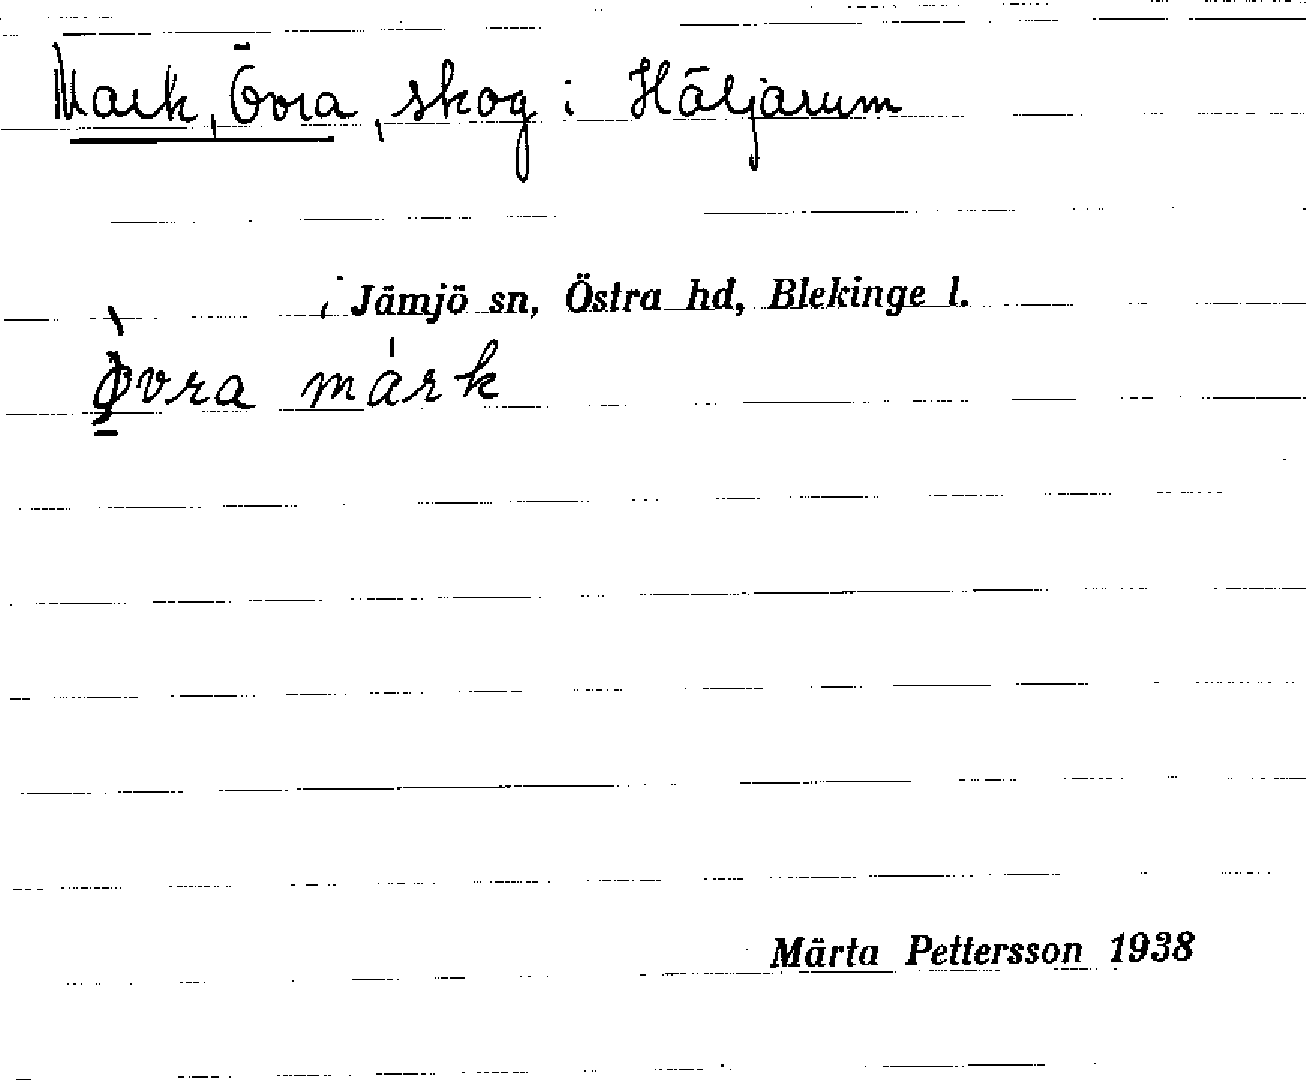 Mark, Övra, skog i Häljarum
Jämjö sn, Östra hd, Blekinge l.
övra mark
Märta Pettersson 1938